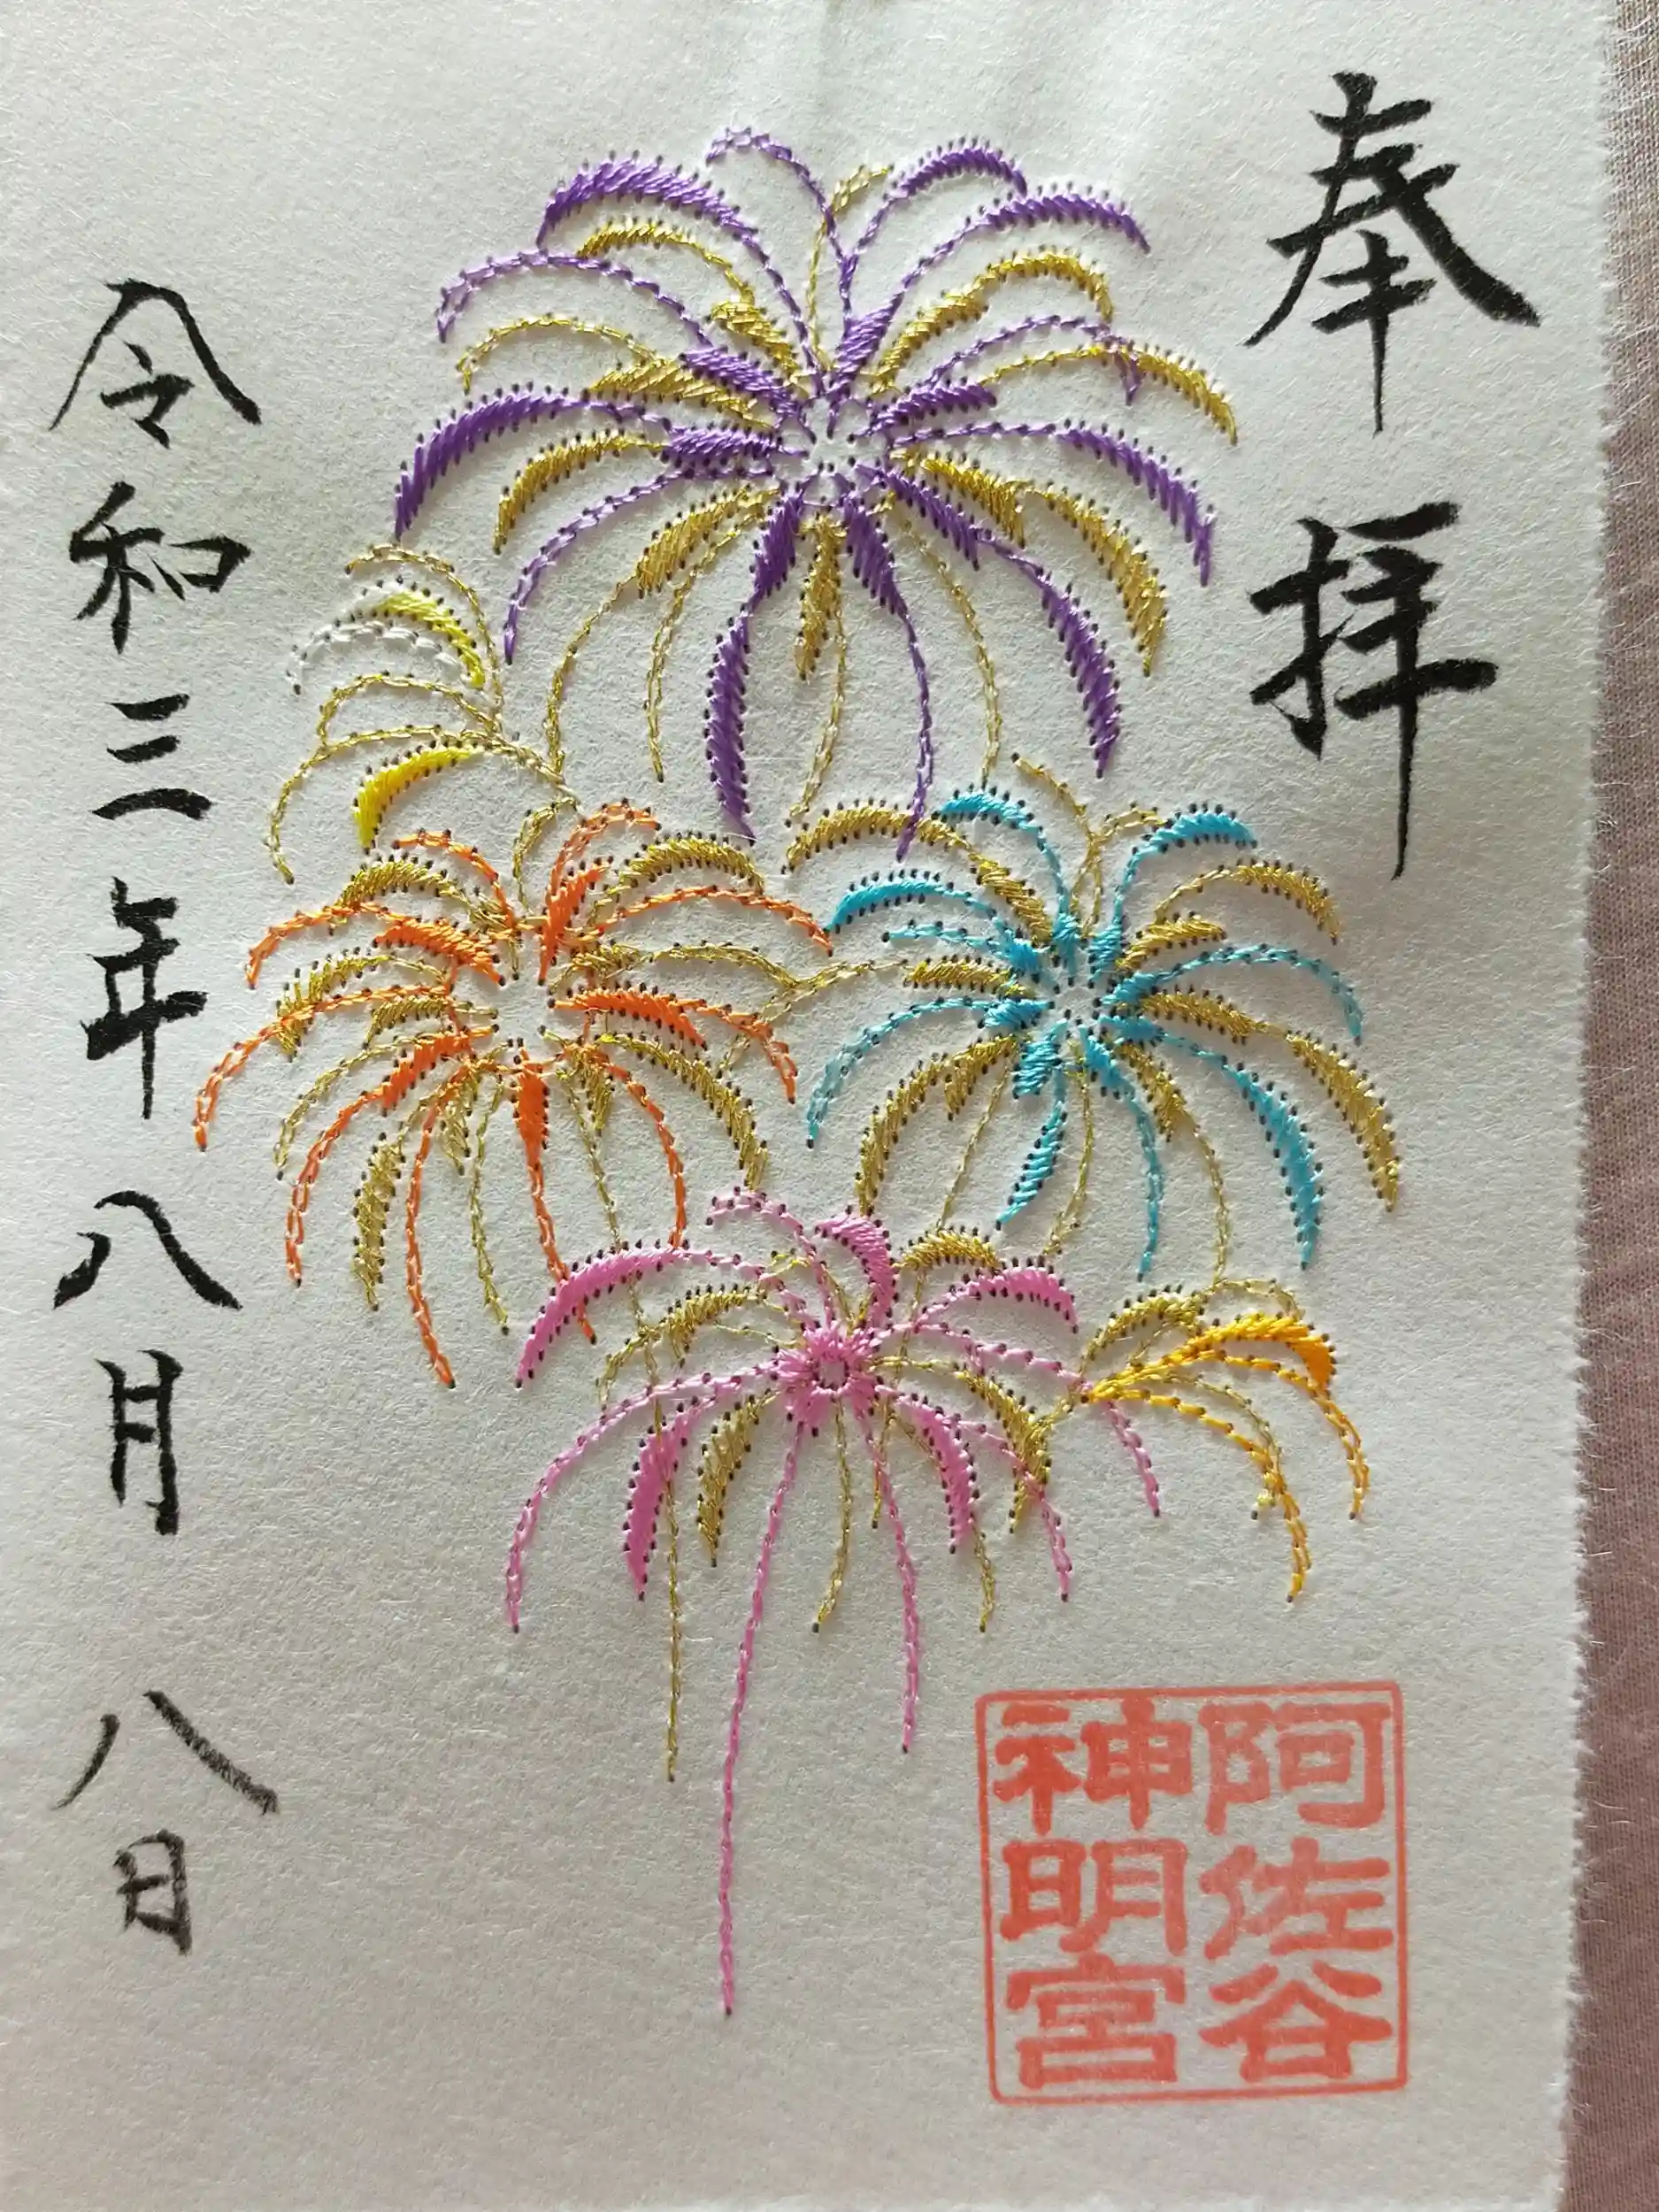 奉拝
令和三年八月八日
阿佐谷
神明宮